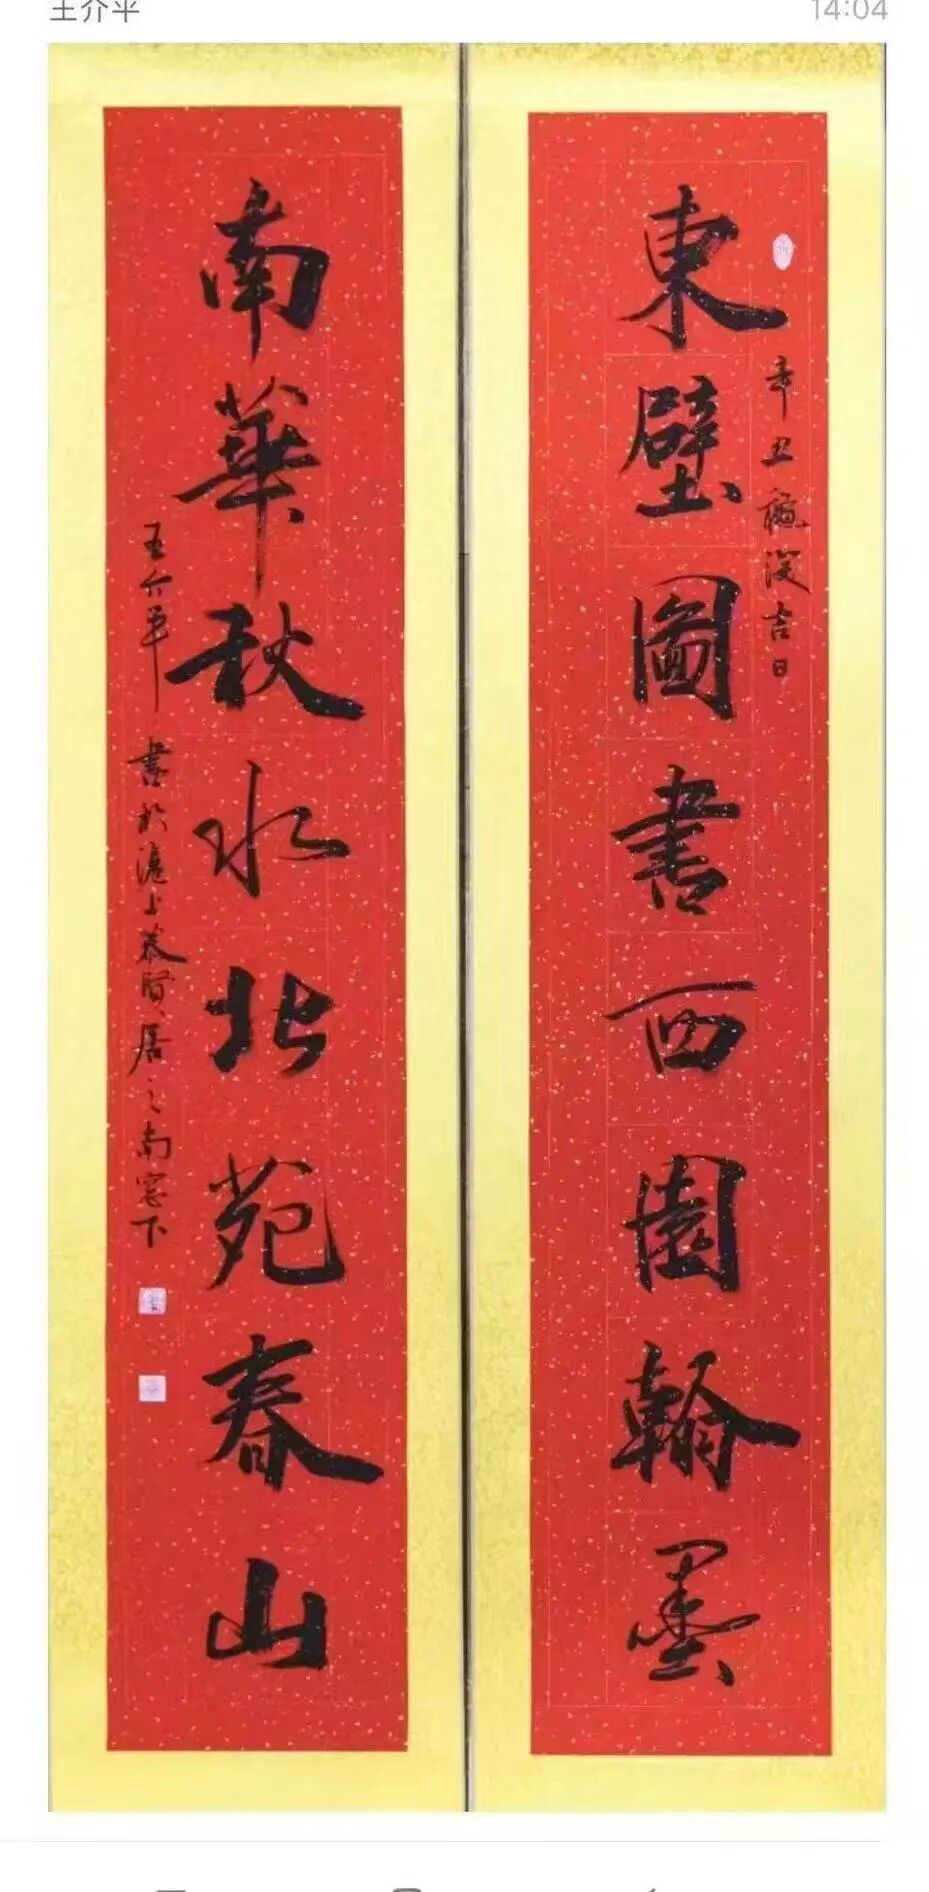 王介平
14:04
東壁圖書西園翰墨
辛丑穐深吉日
南華秋水北苑春山
王介平 書於滬上慕賢居之南窓下